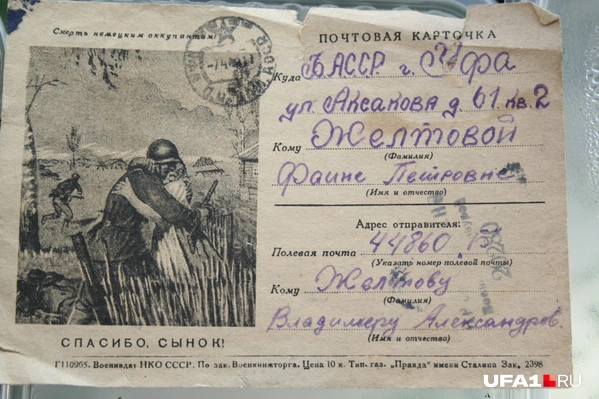 Смерть немецким оккупантам!
ПОЧТОВАЯ КАРТОЧКА
Куда БАССР г. Уфа
ул. Аксакова д. 61 кв. 2
Кому Желтовой
(Фамилия)
Фаине Петровне
(Имя и отчество)
Адрес отправителя:
Полевая почта 44860.
(Указать номер полевой почты)
Кому Желтову
(Фамилия)
Владимеру Александров.
(Имя и отчество)
СПАСИБО, СЫНОК!
Г110955. Воениздат НКО СССР. По зак. Военкниготорга. Цена 10 к. Тип. газ. „Правда" имени Сталина Зак. 2398
UFA1.RU